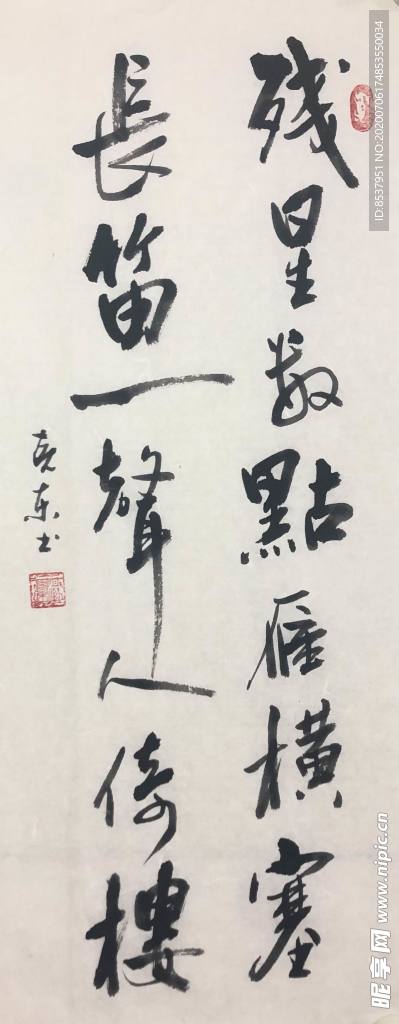 残星数點雁横塞
長笛一聲人倚樓
克东书
ID:8537951 NO:20200706174853550034
昵享网 www.nipic.cn